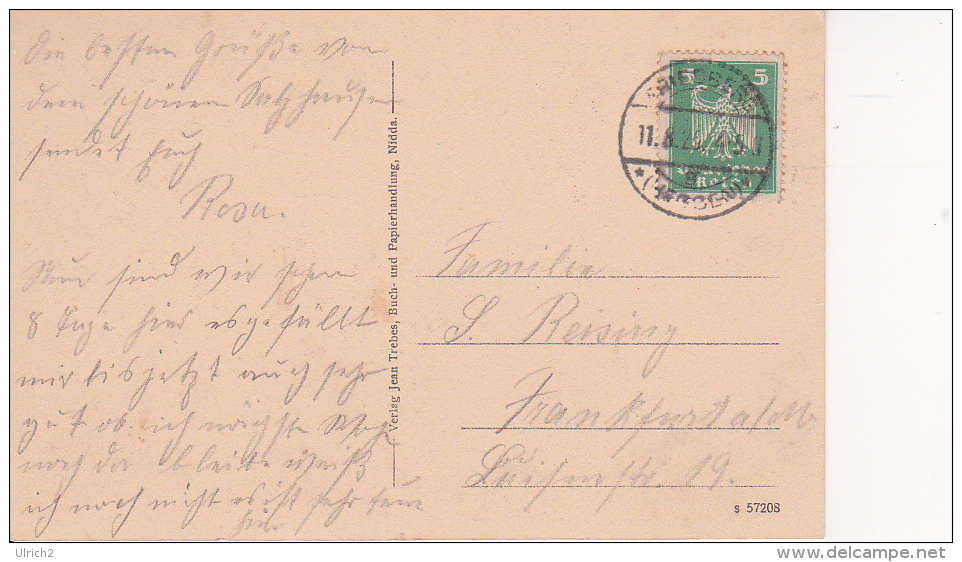 Die besten Grüße von
dem schönen Salzhausen
sendet Euch
Rosa.
Nun sind wir schon
8 Tage hier es gefällt
mir bis jetzt auch sehr
gut ob ich nächste Woche
noch da bleibe weiß
ich noch nicht es ist sehr
hier
Verlag Jean Trebes, Buch- und Papierhandlung, Nidda.
5 5
11.8.26
(HESSEN)
Familie
S. Reising
Frankfurt a/M.
Luisenstr. 19.
s 57208
Ulrich2
http://www.delcampe.net